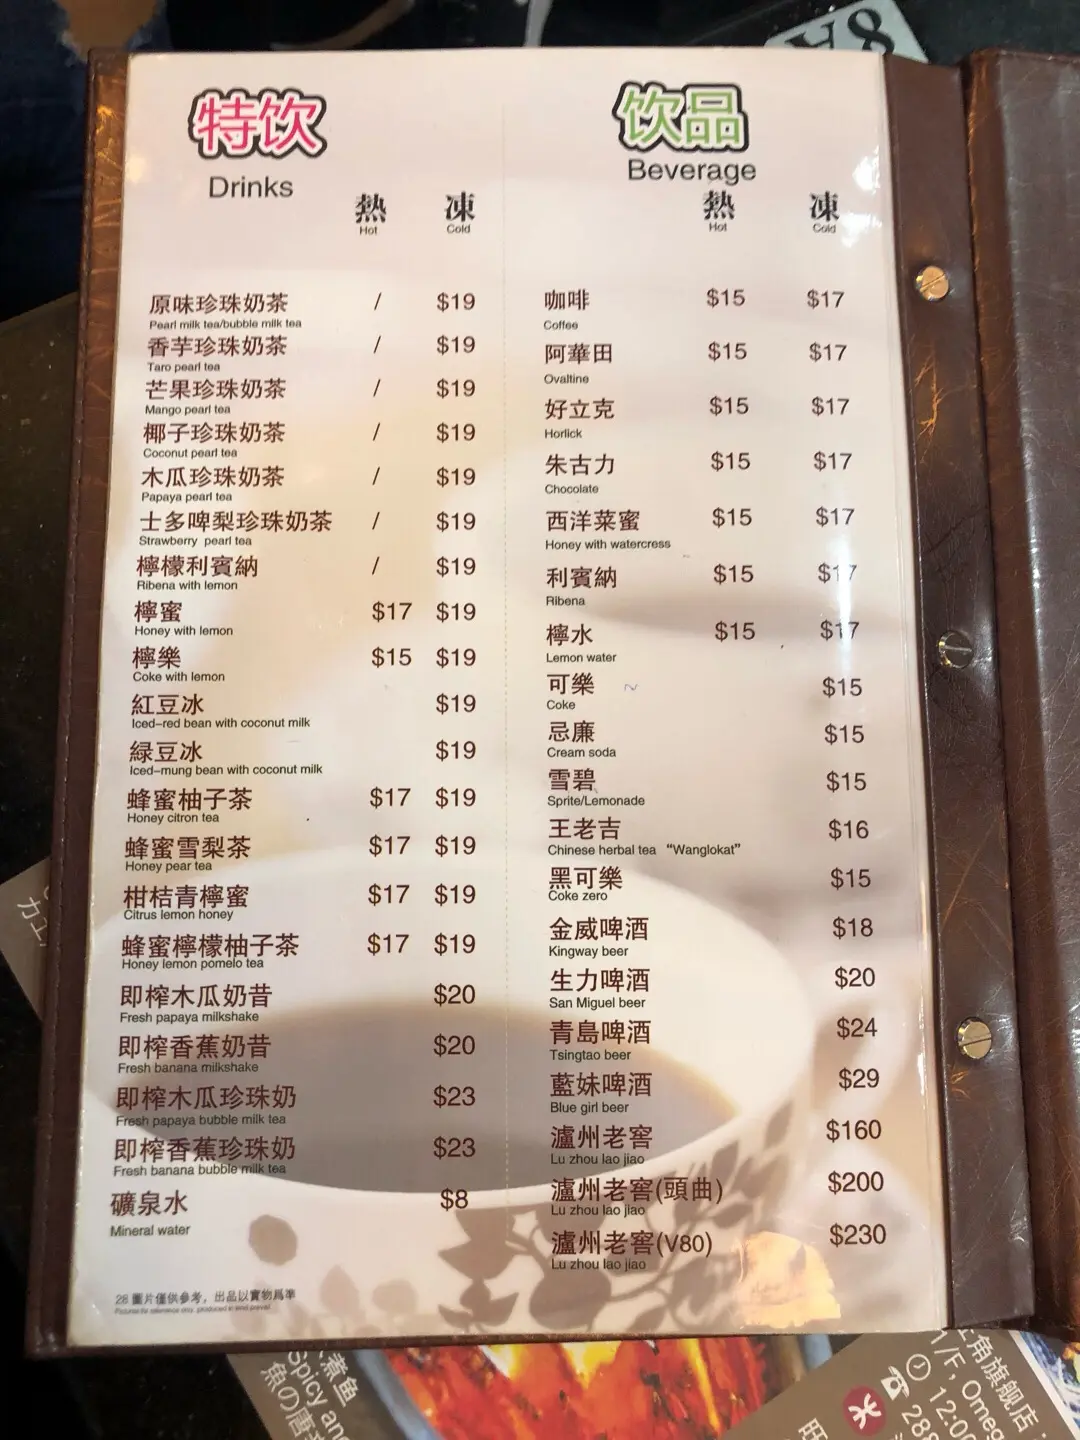 8A
特饮
Drinks
熱 凍
Hot Cold
原味珍珠奶茶 / $19
Pearl milk tea/bubble milk tea
香芋珍珠奶茶 / $19
Taro pearl tea
芒果珍珠奶茶 / $19
Mango pearl tea
椰子珍珠奶茶 / $19
Coconut pearl tea
木瓜珍珠奶茶 / $19
Papaya pearl tea
士多啤梨珍珠奶茶 / $19
Strawberry pearl tea
檸檬利賓納 / $19
Ribena with lemon
檸蜜 $17 $19
Honey with lemon
檸樂 $15 $19
Coke with lemon
紅豆冰 $19
Iced-red bean with coconut milk
緑豆冰 $19
Iced-mung bean with coconut milk
蜂蜜柚子茶 $17 $19
Honey citron tea
蜂蜜雪梨茶 $17 $19
Honey pear tea
柑桔青檸蜜 $17 $19
Citrus lemon honey
蜂蜜檸檬柚子茶 $17 $19
Honey lemon pomelo tea
即榨木瓜奶昔 $20
Fresh papaya milkshake
即榨香蕉奶昔 $20
Fresh banana milkshake
即榨木瓜珍珠奶 $23
Fresh papaya bubble milk tea
即榨香蕉珍珠奶 $23
Fresh banana bubble milk tea
礦泉水 $8
Mineral water
28 圖片僅供參考，出品以實物爲準
饮品
Beverage
熱 凍
Hot Cold
咖啡 $15 $17
Coffee
阿華田 $15 $17
Ovaltine
好立克 $15 $17
Horlick
朱古力 $15 $17
Chocolate
西洋菜蜜 $15 $17
Honey with watercress
利賓納 $15 $17
Ribena
檸水 $15 $17
Lemon water
可樂 $15
Coke
忌廉 $15
Cream soda
雪碧 $15
Sprite/Lemonade
王老吉 $16
Chinese herbal tea “Wanglokat”
黑可樂 $15
Coke zero
金威啤酒 $18
Kingway beer
生力啤酒 $20
San Miguel beer
青島啤酒 $24
Tsingtao beer
藍妹啤酒 $29
Blue girl beer
瀘州老窖 $160
Lu zhou lao jiao
瀘州老窖(頭曲) $200
Lu zhou lao jiao
瀘州老窖(V80) $230
Lu zhou lao jiao
煮鱼
picy an
魚の唐
角旗舰店
1/F, Omeg
12:00
288
旺